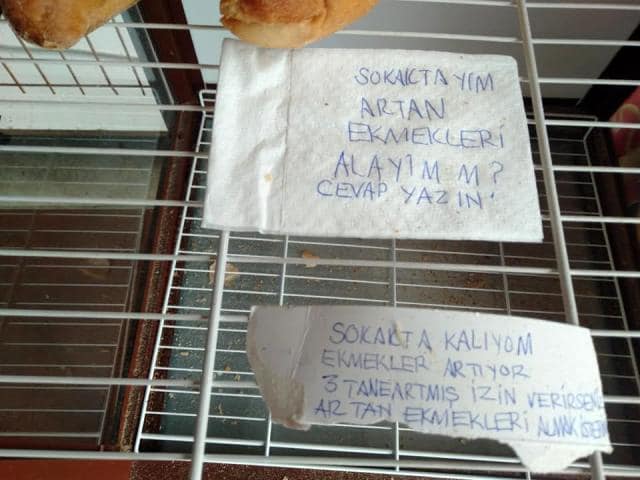 SOKAKTAYIM
ARTAN
EKMEKLERİ
ALAYIM M?
CEVAP YAZIN.
SOKAKTA KALIYOM
EKMEKLER ARTIYOR
3 TANEARTMIŞ İZİN VERİRSENİZ
ARTAN EKMEKLERİ ALMAK